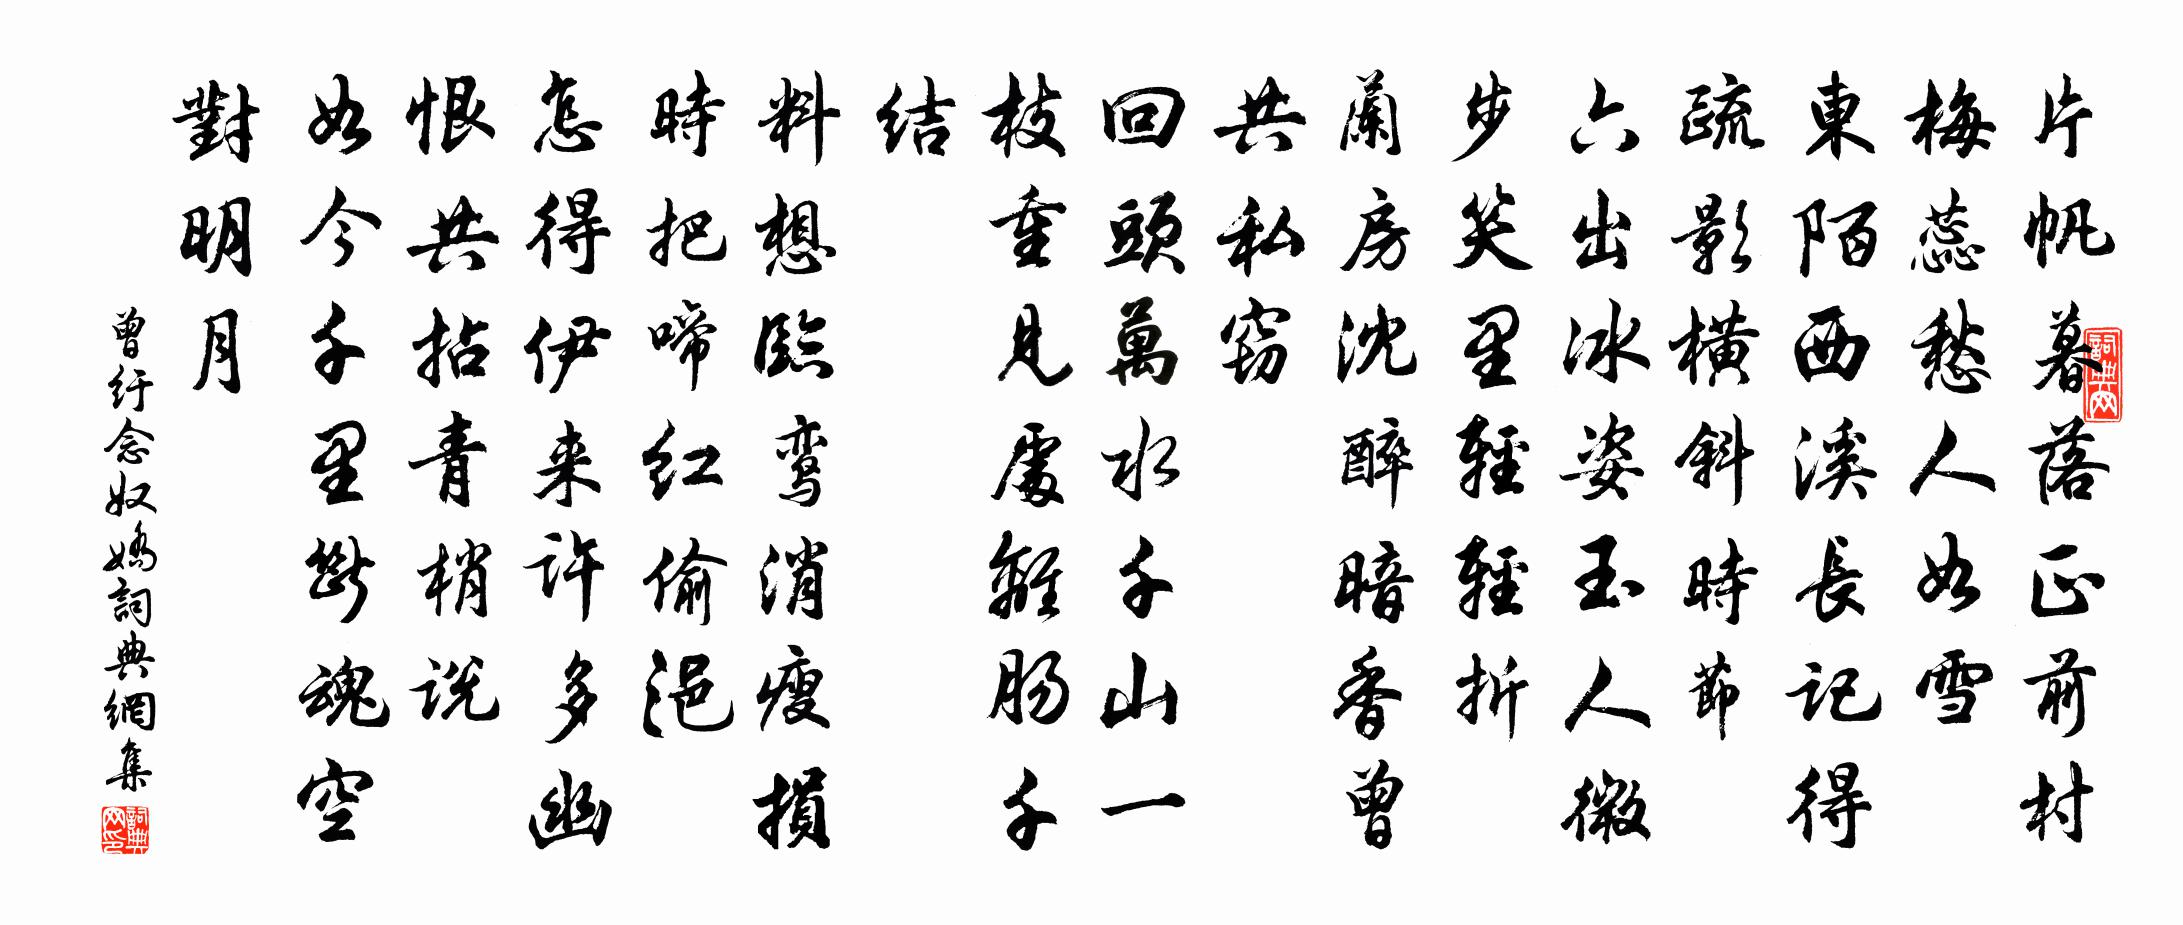 片帆暮落正前村
梅蕊愁人如雪
東陌西溪長記得
疏影橫斜時節
六出冰姿玉人微
步笑里輕輕折
蘭房沈醉暗香曾
共私窃
回頭萬水千山一
枝重見處離肠千
结
料想臨鸾消瘦損
時把啼红偷浥
怎得伊来許多幽
恨共拈青梢説
如今千里斷魂空
對明月
曾纡念奴嬌詞典網集
詞典网
詞典网印